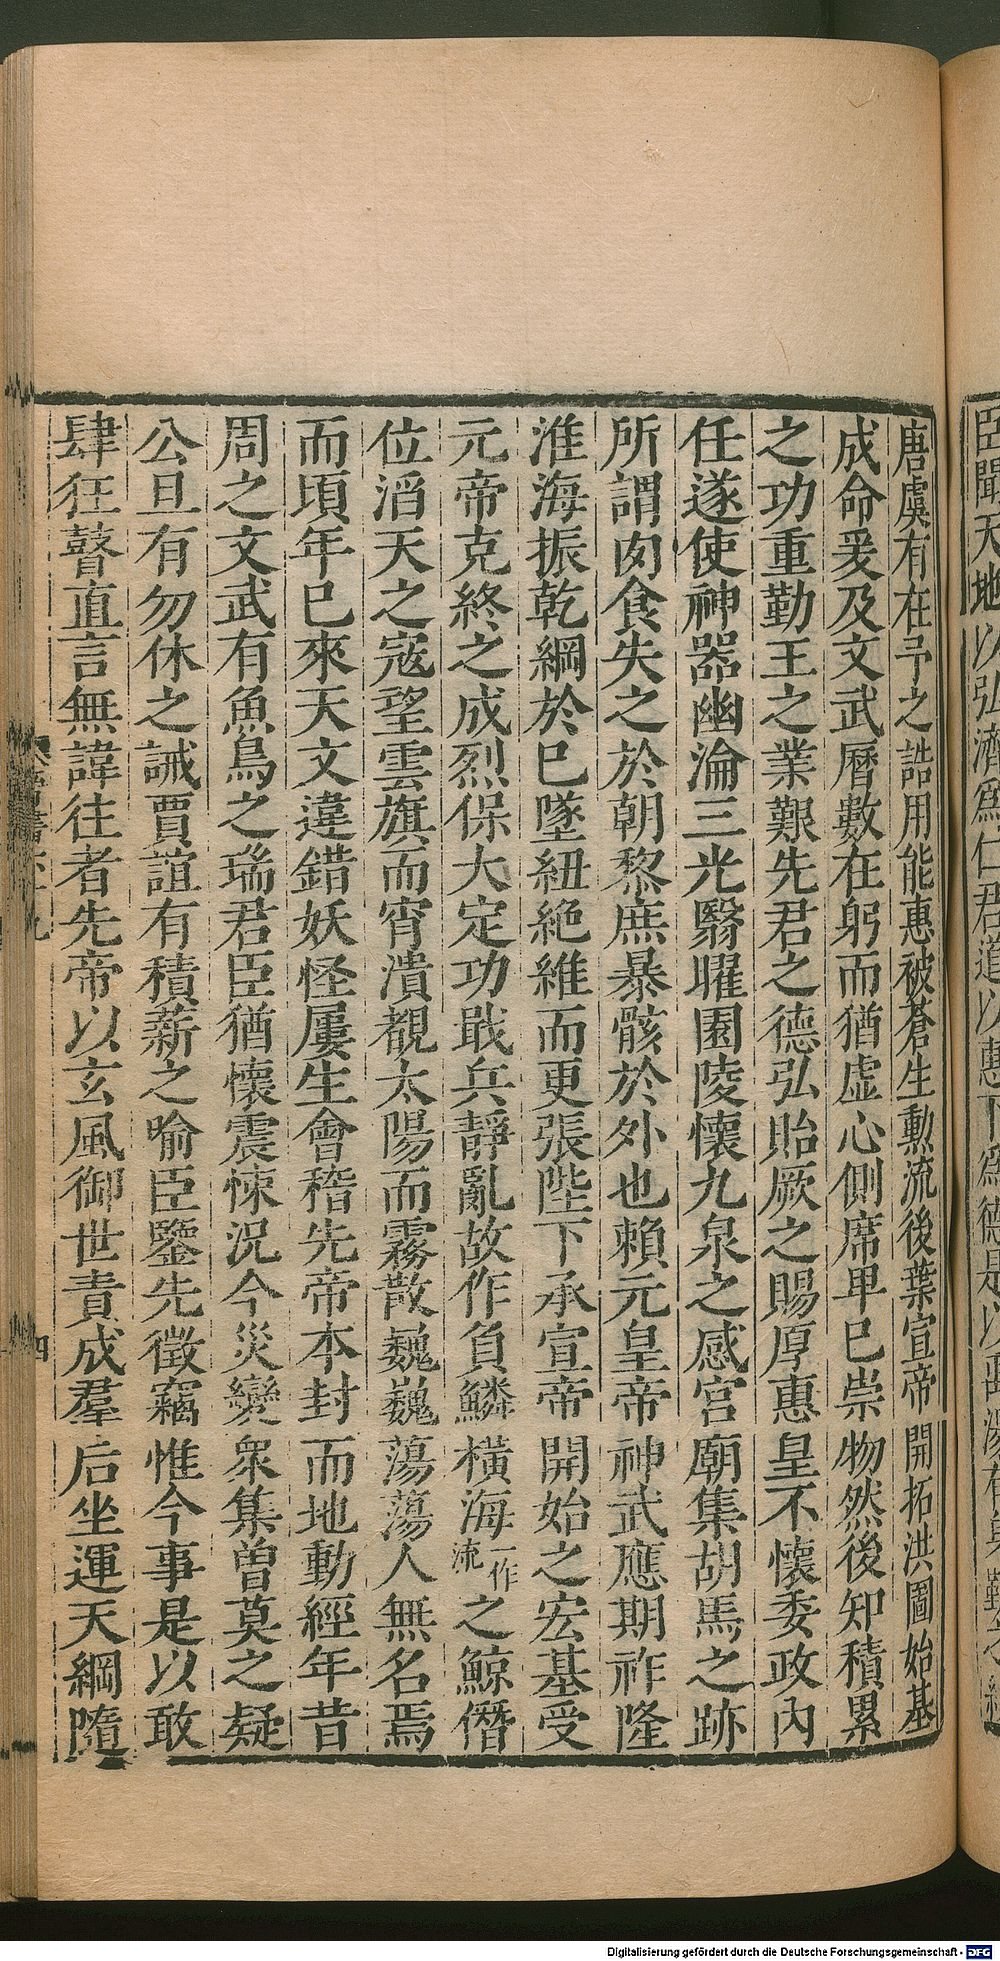 臣聞天地以弘濟爲仁君道以惠下爲德是以
唐虞有在予之誥用能惠被蒼生勳流後葉宣帝開拓洪圖始基
成命爰及文武曆數在躬而猶虛心側席卑已崇物然後知積累
之功重勤王之業艱先君之德弘貽厥之賜厚惠皇不懷委政內
任遂使神器幽淪三光翳曜園陵懷九泉之感宮廟集胡馬之跡
所謂肉食失之於朝黎庶暴骸於外也賴元皇帝神武應期祚隆
淮海振乾綱於已墜紐絕維而更張陛下承宣帝開始之宏基受
元帝克終之成烈保大定功戢兵靜亂故作負鱗橫海一作流之鯨僭
位滔天之寇望雲旗而宵潰覩太陽而霧散巍巍蕩蕩人無名焉
而頃年已來天文違錯妖怪屢生會稽先帝本封而地動經年昔
周之文武有魚鳥之瑞君臣猶懷震悚況今災變衆集曾莫之疑
公旦有勿休之誡賈誼有積薪之喻臣鑒先徵竊惟今事是以敢
肆狂瞽直言無諱往者先帝以玄風御世責成羣后坐運天綱隨
四
Digitalisierung gefördert durch die Deutsche Forschungsgemeinschaft - DFG